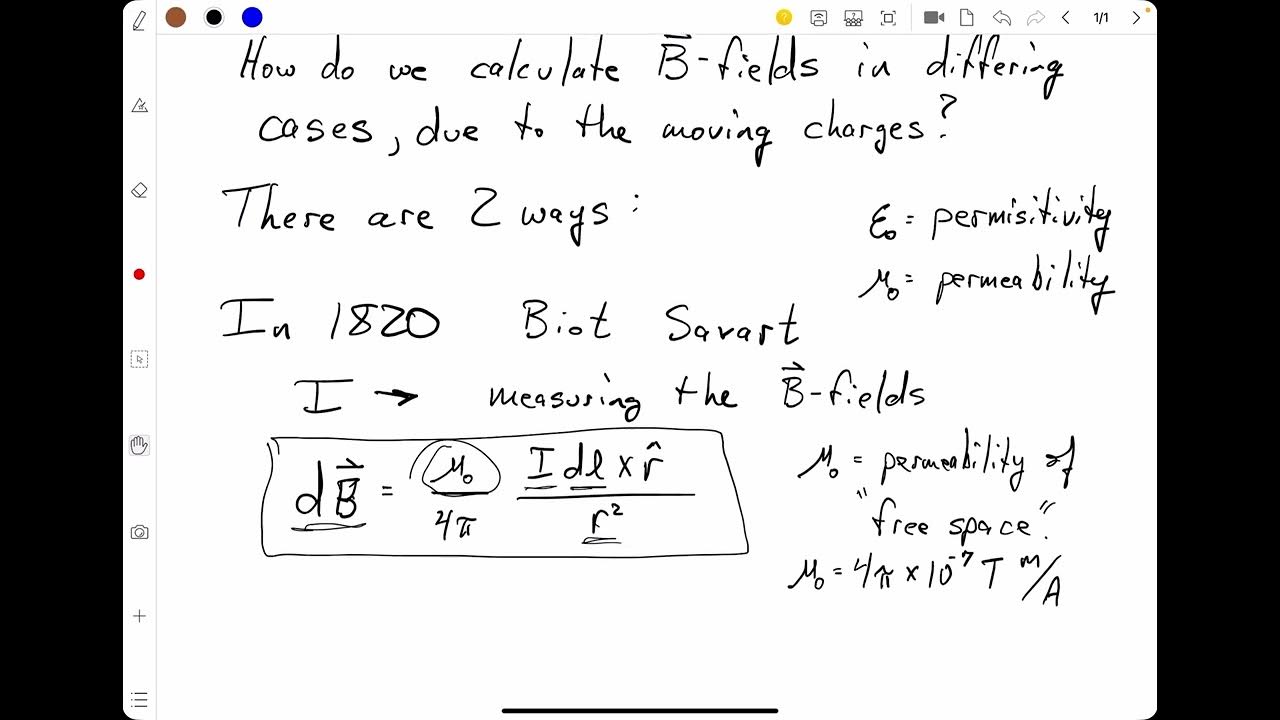 1/1
How do we calculate B⃗-fields in differing
cases, due to the moving charges?
There are 2 ways:
ε₀ = permisitivity
μ₀ = permeability
In 1820 Biot Savart
I → measuring the B⃗-fields
dB⃗ = μ₀/4π I dl × r̂ / r²
μ₀ = permeability of
"free space".
μ₀ = 4π × 10⁻⁷ T m/A